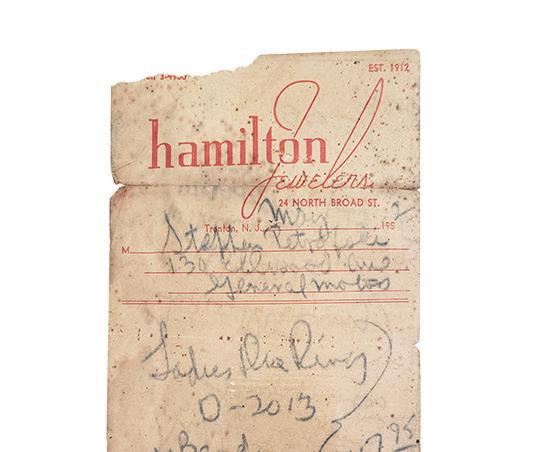 EST. 1912
hamilton
Jewelers.
24 NORTH BROAD ST.
Trenton, N. J., May 2 195
M Stephen
130 Ave.
General Motors
Ladies Dia Ring
D-2013
Band 95